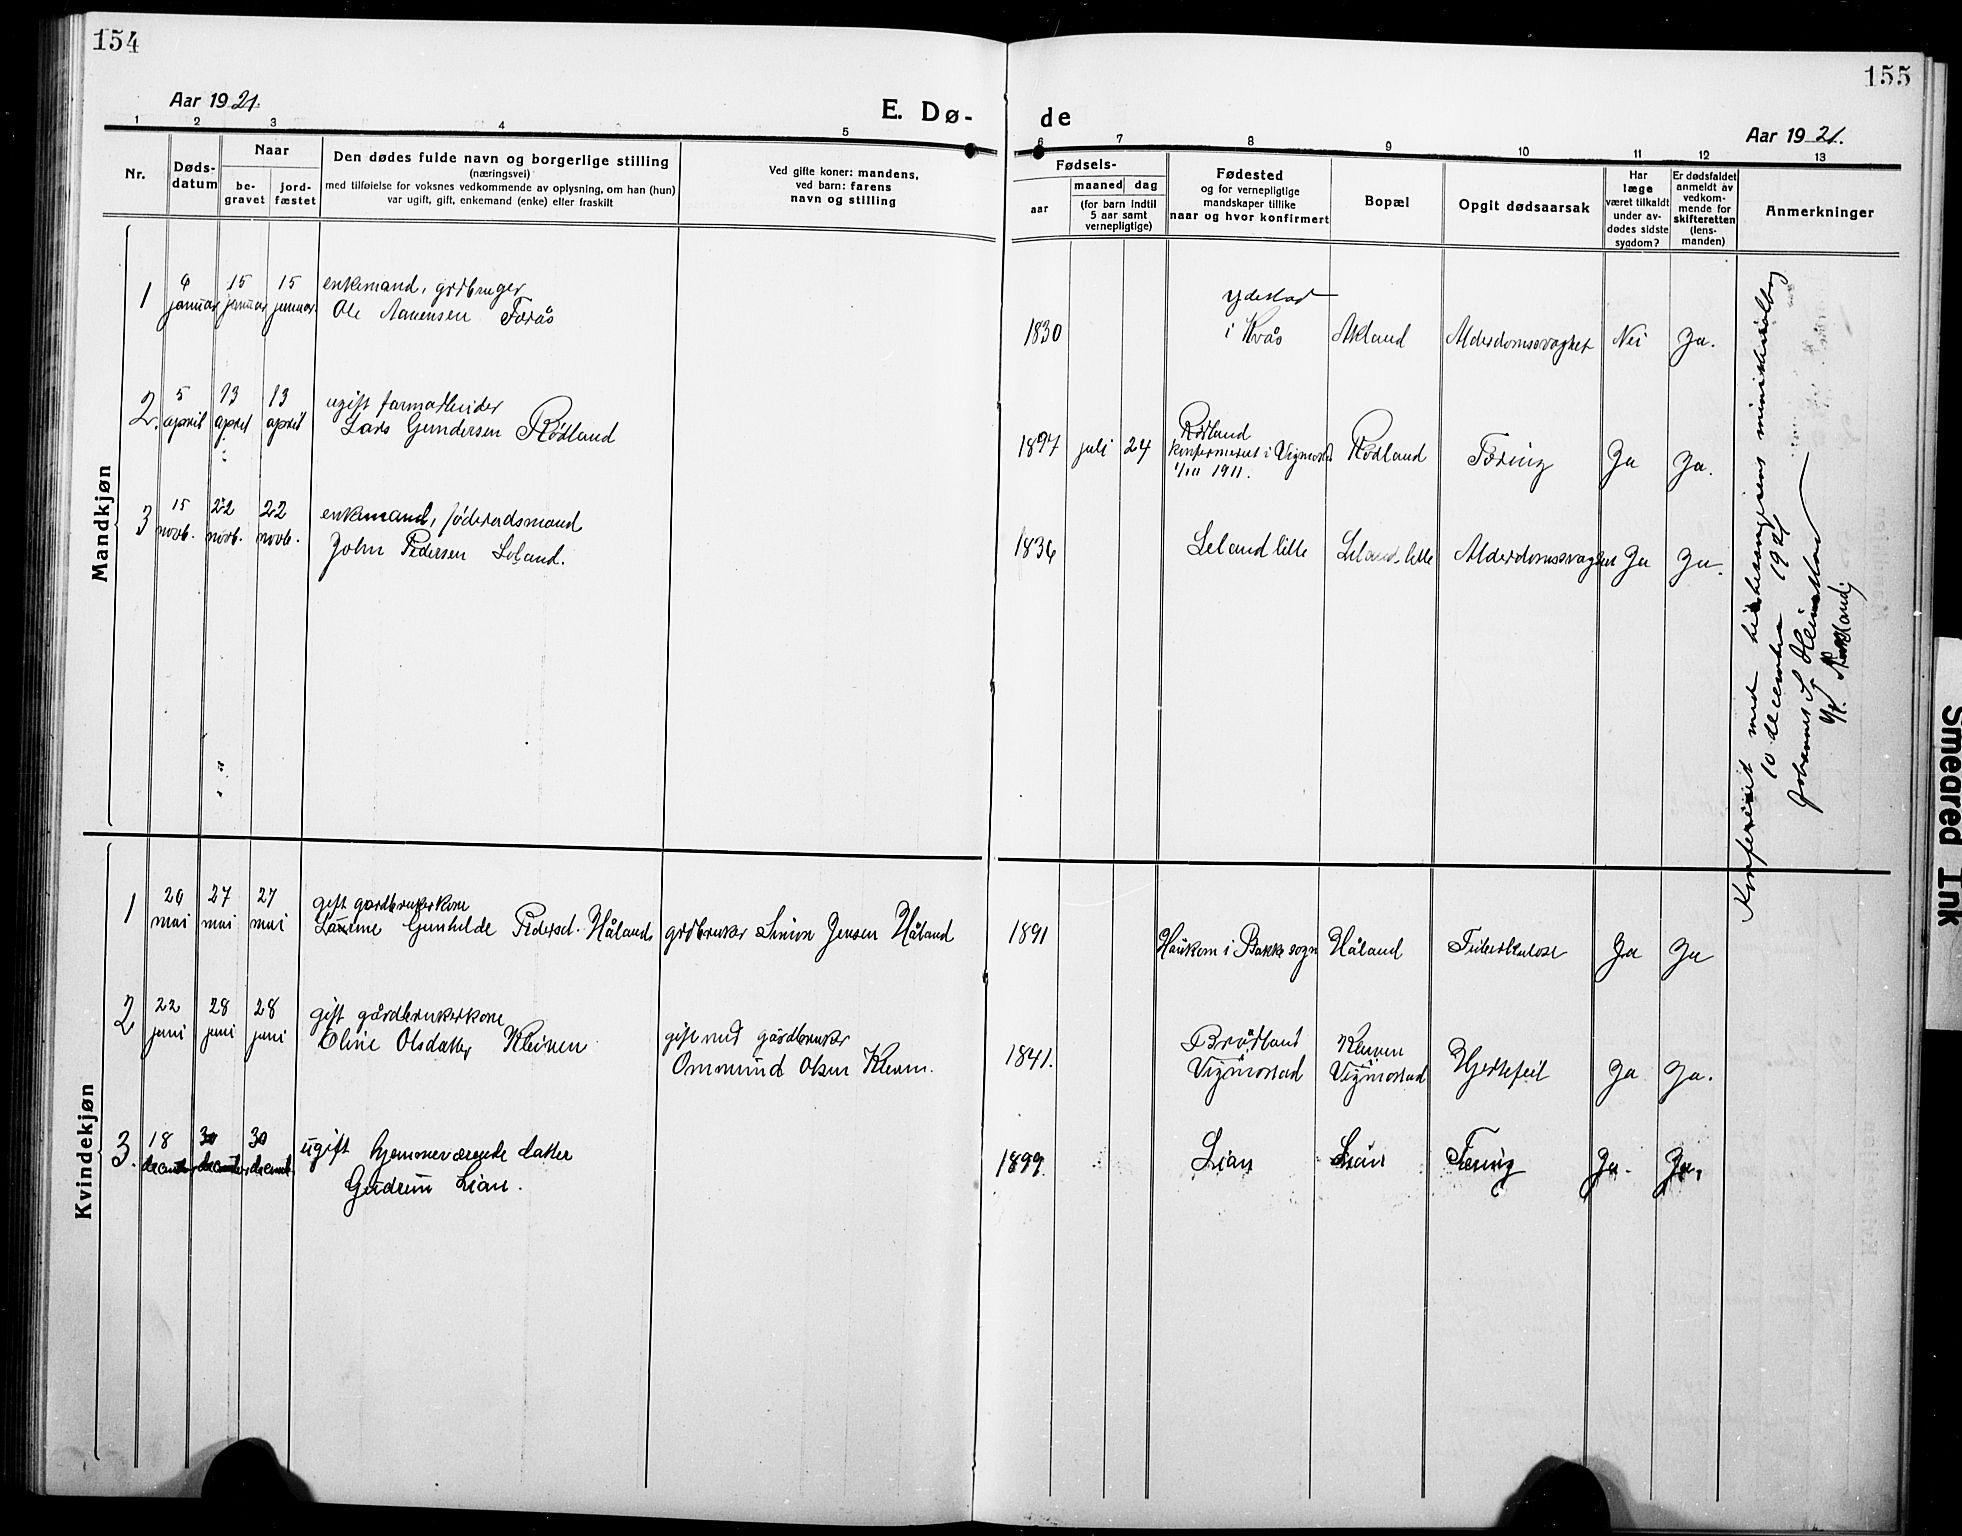 154
155
Aar 1921.
E. Dø-
de
Aar 1921.
1 2 3 4 5
6 7 8 9 10 11 12 13
Nr.
Døds-
datum
Naar
be-
gravet
jord-
fæstet
Den dødes fulde navn og borgerlige stilling
(næringsvei)
med tilføielse for voksnes vedkommende av oplysning, om han (hun)
var ugift, gift, enkemand (enke) eller fraskilt
Ved gifte koner: mandens,
ved barn: farens
navn og stilling
Fødsels-
aar
maaned
dag
(for barn indtil
5 aar samt
vernepligtige)
Fødested
og for vernepligtige
mandskaper tillike
naar og hvor konfirmert
Bopæl
Opgit dødsaarsak
Har
læge
været tilkaldt
under av-
dødes sidste
sygdom?
Er dødsfaldet
anmeldt av
vedkom-
mende for
skifteretten
(lens-
manden)
Anmerkninger
Mandkjøn
1
6 januar
15 januar
15 januar
enkemand, grdbruger
Ole Føraas
1830
i Kvås
Alderdomssvaghet
Nei
Ja.
2.
5 april
13 april
13 april
ugift
Lars Gundersen Rødland
1897 juli 24
Rødland
konfirmeret i Vigmostad
1911.
Rødland
Tæring
Ja
Ja.
3
15 novb.
22 novb.
22 novb.
enkemand, føderaadsmand
John Pedersen Leland.
1836
Leland lille
Leland lille
Alderdomssvaghet
Ja
Ja.
Konfereret med
10 december 1924
Kvindekjøn
1
20 mai
27 mai
27 mai
gift gardbrukerkone
Gunhilde Pedersd. Håland
grdbruker Simon Jensen Håland
1891
Haukom i Bakke sogn
Håland
Tuberkulose
Ja
Ja
2
22 juni
28 juni
28 juni
gift gårdbrukerkone
Oline Olsdatter Kleiven
gift med gårdbruker
Ommund Olsen Kleven.
1841.
Vigmostad
Kleiven
Vigmostad
Hjertefeil
Ja
Ja.
3.
18
30
30
ugift hjemmeværende datter
Gudrun Lian.
1899
Lian
Lian
Tæring
Ja.
Ja.
Smeared Ink